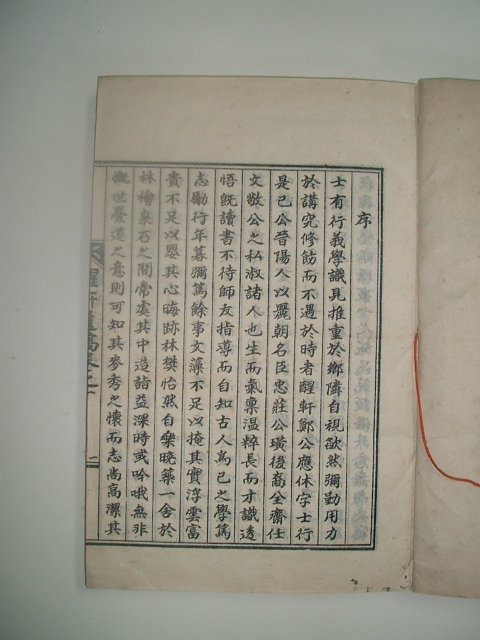 序
士有行義學識見推重於鄕隣自視欿然彌勤用力
於講究修飭而不遇於時者醒軒鄭公應休字士行
是已公晉陽人以麗朝名臣忠莊公璜後裔全齋任
文敬公之私淑諸人也生而氣稟溫粹長而才識透
悟旣讀書不待師友指導而自知古人爲己之學篤
志勵行年暮彌篤餘事文藻不足以掩其實浮雲富
貴不足以嬰其心晦跡林樊怡然自樂晩築一舍於
林檜泉石之間常處其中造詣益深時或吟哦無非
慨世憂道之意則可知其麥秀之懷而志尙高潔其
醒軒遺稿卷之